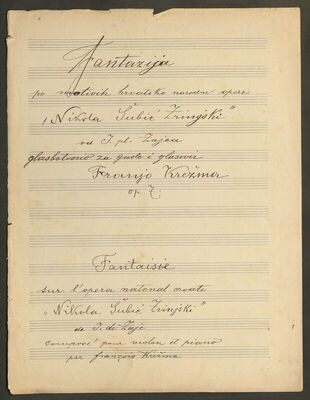 Fantazija
po motivih hrvatske narodne opere
„Nikola Šubić Zrinjski"
od I. pl. Zajca
glasbotvorio za gusle i glasovir
Franjo Krežma
op. 7.
Fantaisie
sur l'opera national croate
„Nikola Šubić Zrinjski"
de I. de Zajc
composé pour violon et piano
par François Krežma